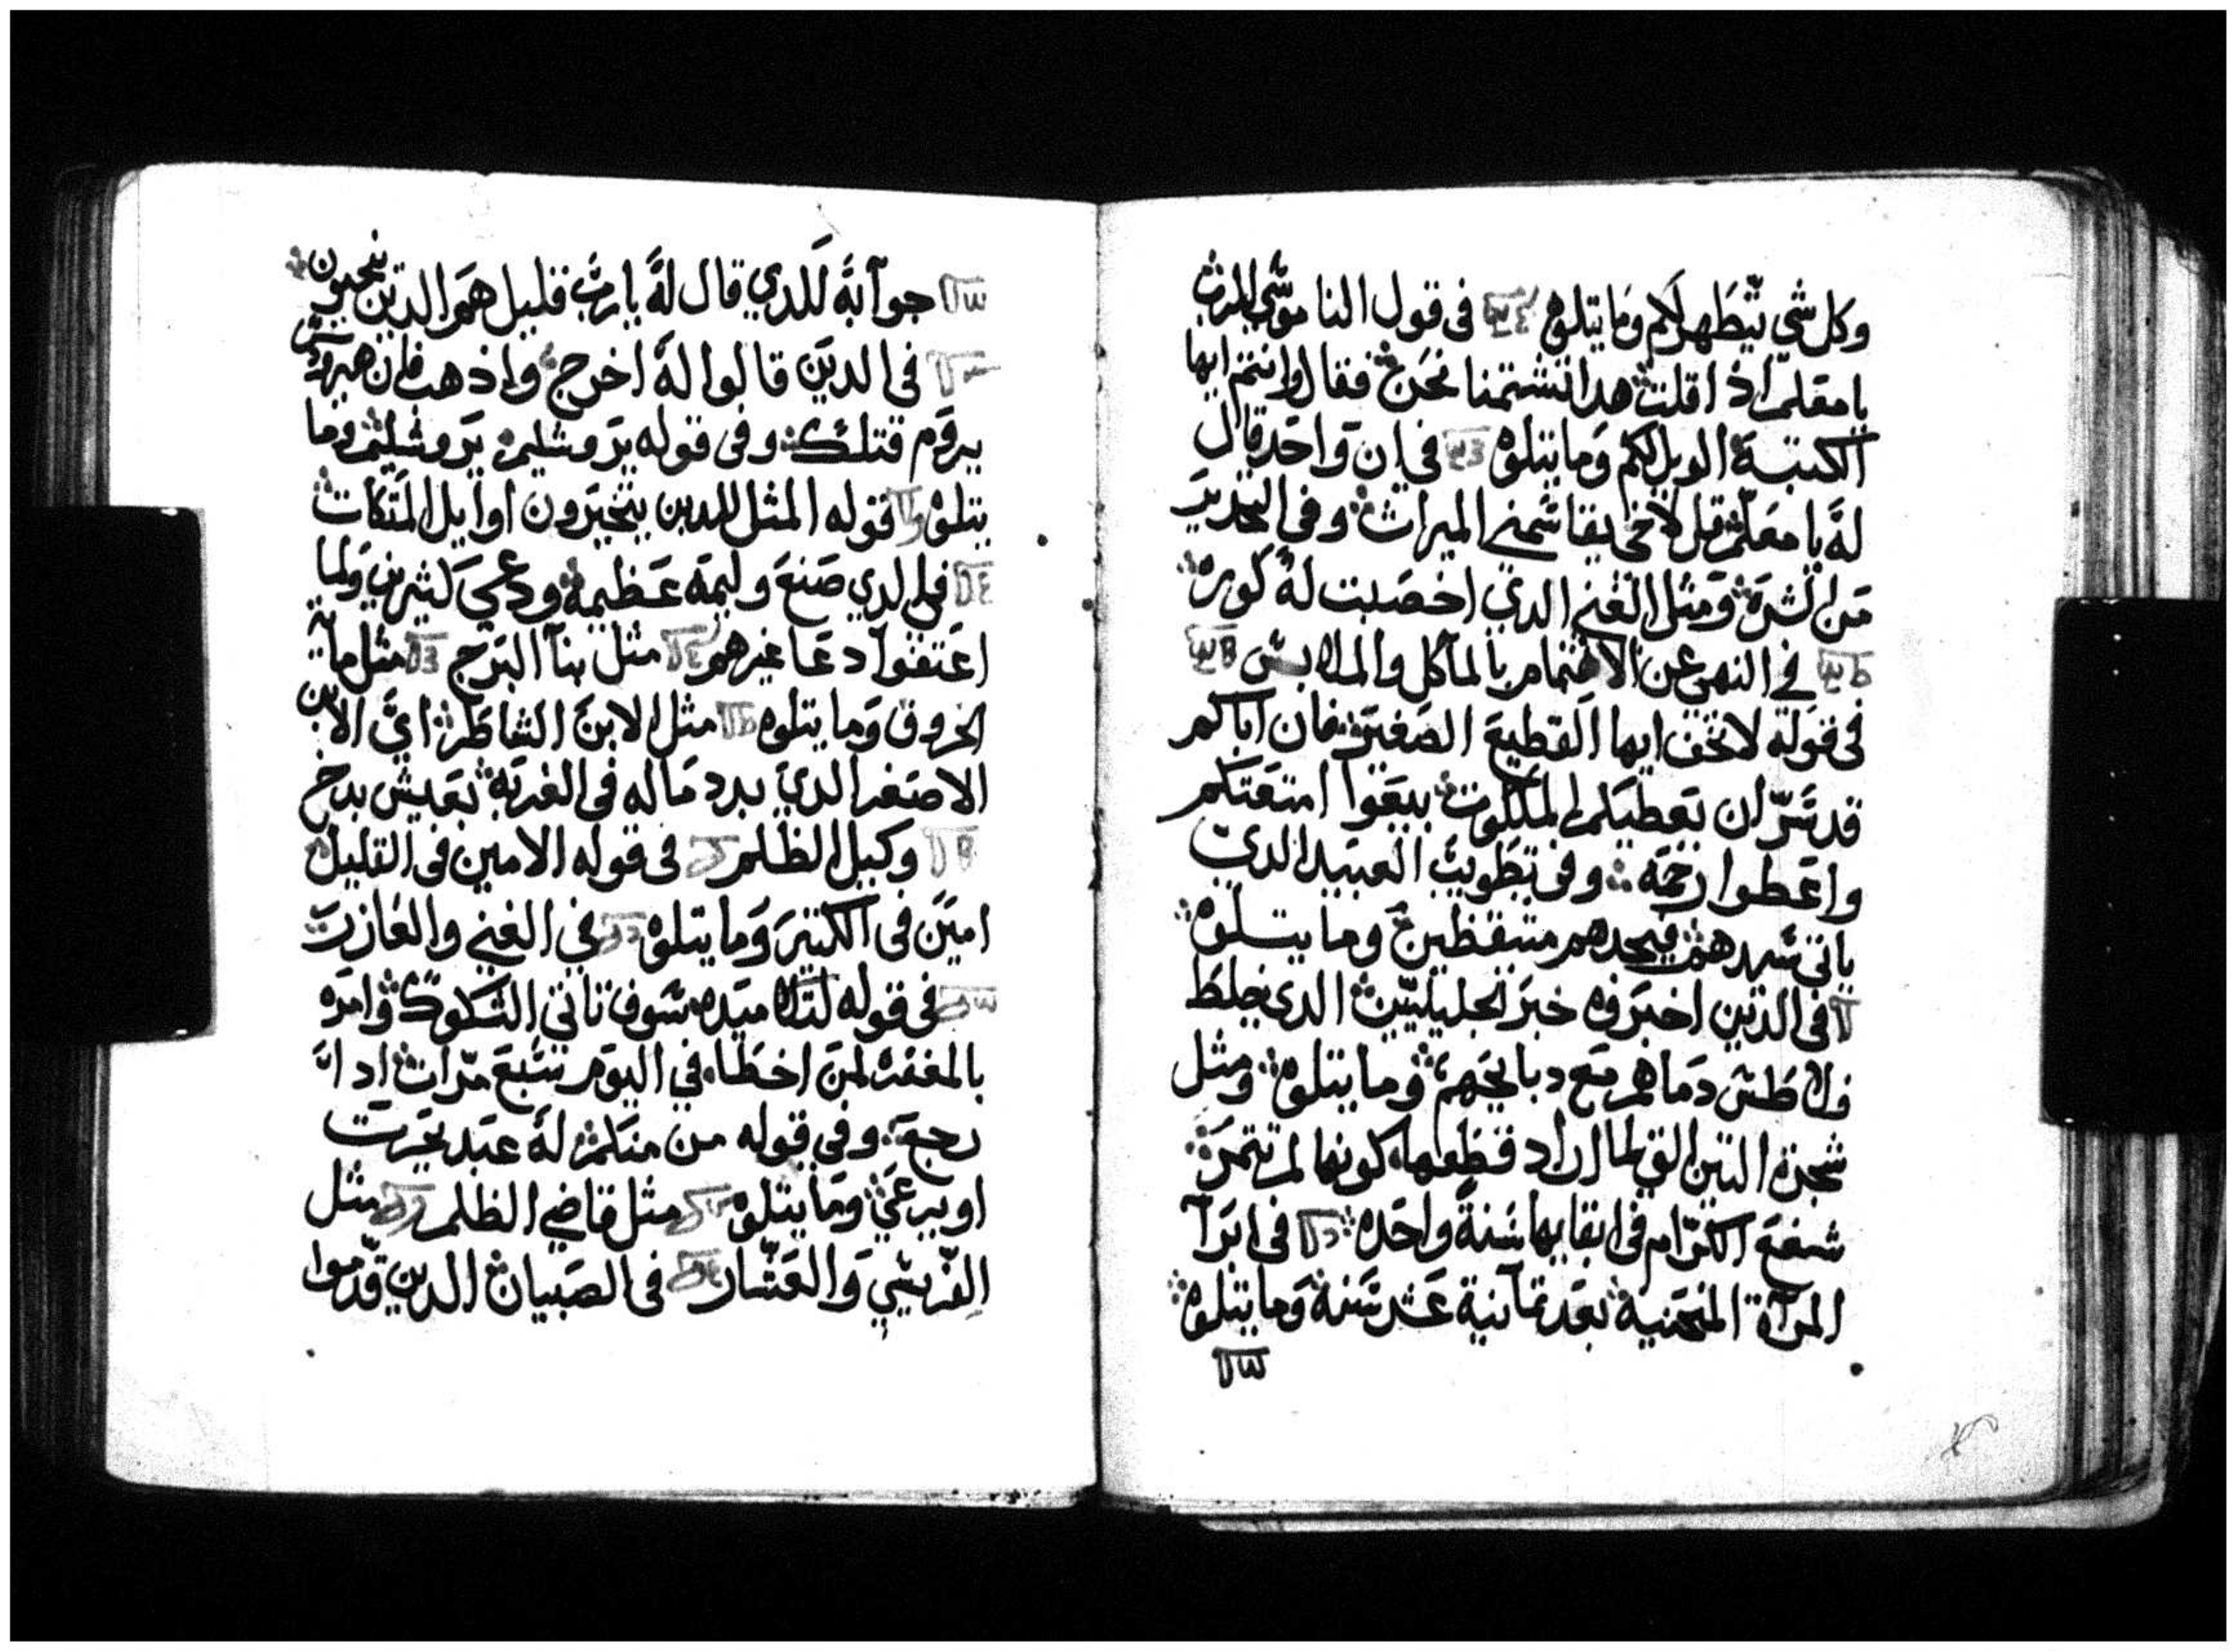 وكل شي يتطهر لكم وما يتلوه في قول الناموسي للرب
يا معلم اذا قلت هدا تشتمنا نحن فقال وانتم ايها
الكتبة الويل لكم وما يتلوه في ان واحد قال
له يا معلم قل لاخي يقاسمني الميراث وفي التحدير
من الشره ومثل الغني الدي اخصبت له كوره
في النهي عن الاهتمام بالماكل والملابس
في قوله لا تخف ايها القطيع الصغير فان اباكم
قد سر ان يعطيكم الملكوت بيعوا امتعتكم
واعطوا رحمه وفي تطويب العبيد الدي
ياتي سيدهم فيجدهم متيقظين وما يتلوه
في الدين اخبروه خبر الجليليين الدي خلط
فلاطس دماهم مع دبايحهم وما يتلوه ومثل
شجرة التين التي لما اراد قطعها كونها لم تتمر
شفع الكرام في ابقايها سنة واحده في ابرآ
المرآة المنحنية بعد تمآنية عشر سنة وما يتلوه
جوآبة للدي قال له يارب قليل هم الدين ينجيون
في الدين قالوا له اخرج واذهب فان هيرودس
يروم قتلك وفي قوله يروشليم يروشليم وما
يتلوه قوله المثل للدين يتخيرون اوايل المتكات
في الدي صنع وليمة عظيمة ودعي كثيرين ولما
اعتفوا دعا غيرهم مثل بنآ البرج مثل ماية
الخروف وما يتلوه مثل الابن الشاطر اي الابن
الاصغر الدي بدد ماله في الغربة بعيش بدخ
وكيل الظلم في قوله الامين في القليل
امين في الكتير وما يتلوه في الغني والعازر
في قوله لتلاميده سوف تاتي الشكوك وامره
بالمغفره لمن اخطا في اليوم سبع مرات ادا
رجع وفي قوله من منكم له عبد يحرت
او يرعي وما يتلوه مثل قاضي الظلم مثل
الفريسي والعشار في الصبيان الدين قدموا